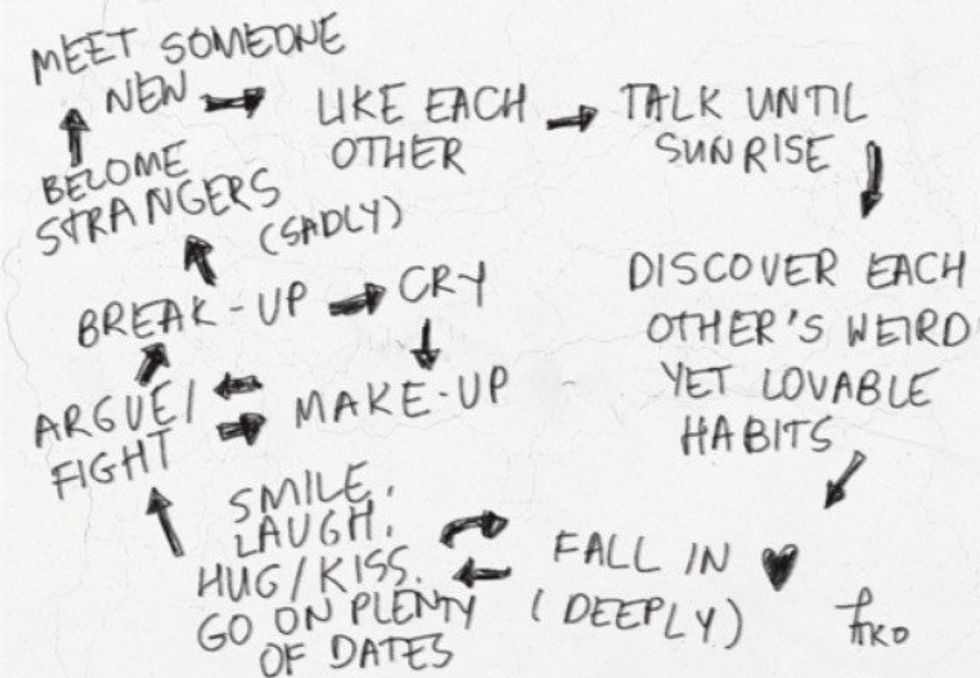 MEET SOMEONE
NEW
LIKE EACH
OTHER
TALK UNTIL
SUNRISE
DISCOVER EACH
OTHER'S WEIRD
YET LOVABLE
HABITS
FALL IN ♥
(DEEPLY)
SMILE.
LAUGH.
HUG/KISS.
GO ON PLENTY
OF DATES
ARGUE/
FIGHT
MAKE-UP
BREAK-UP
CRY
BECOME
STRANGERS
(SADLY)